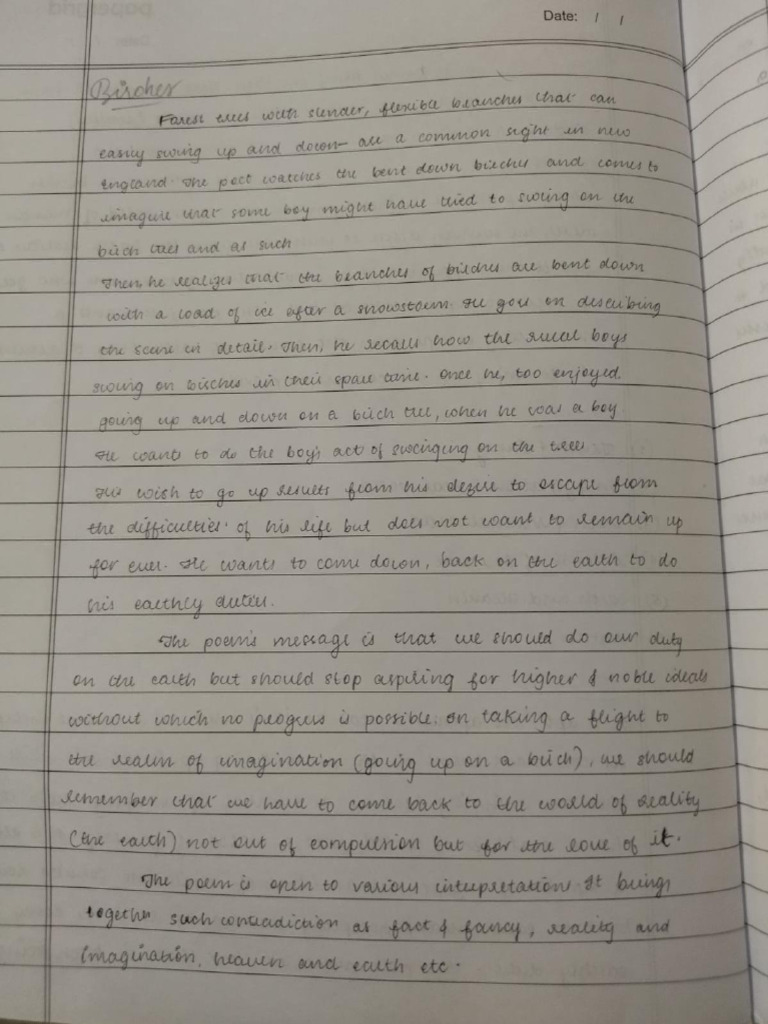 Date: / /
Birches
Forest trees with slender, flexible branches that can
easily swing up and down- are a common sight in new
England. The poet watches the bent down birches and comes to
imagine that some boy might have tried to swing on the
birch trees and as such
Then, he realizes that the branches of birches are bent down
with a load of ice after a snowstorm. He goes on describing
the scene in detail. Then, he recalls how the rural boys
swing on birches in their spare time. Once he, too enjoyed.
going up and down on a birch tree, when he was a boy.
He wants to do the boy's act of swinging on the trees
His wish to go up results from his desire to escape from
the difficulties of his life but does not want to remain up
for ever. He wants to come down, back on the earth to do
his earthly duties.
The poem's message is that we should do our duty
on the earth but should stop aspiring for higher & noble ideals
without which no progress is possible. on taking a flight to
the realm of imagination (going up on a birch), we should
remember that we have to come back to the world of reality
(the earth) not out of compulsion but for the love of it.
The poem is open to various interpretation. It brings
together such contradiction as fact & fancy, reality and
imagination, heaven and earth etc.